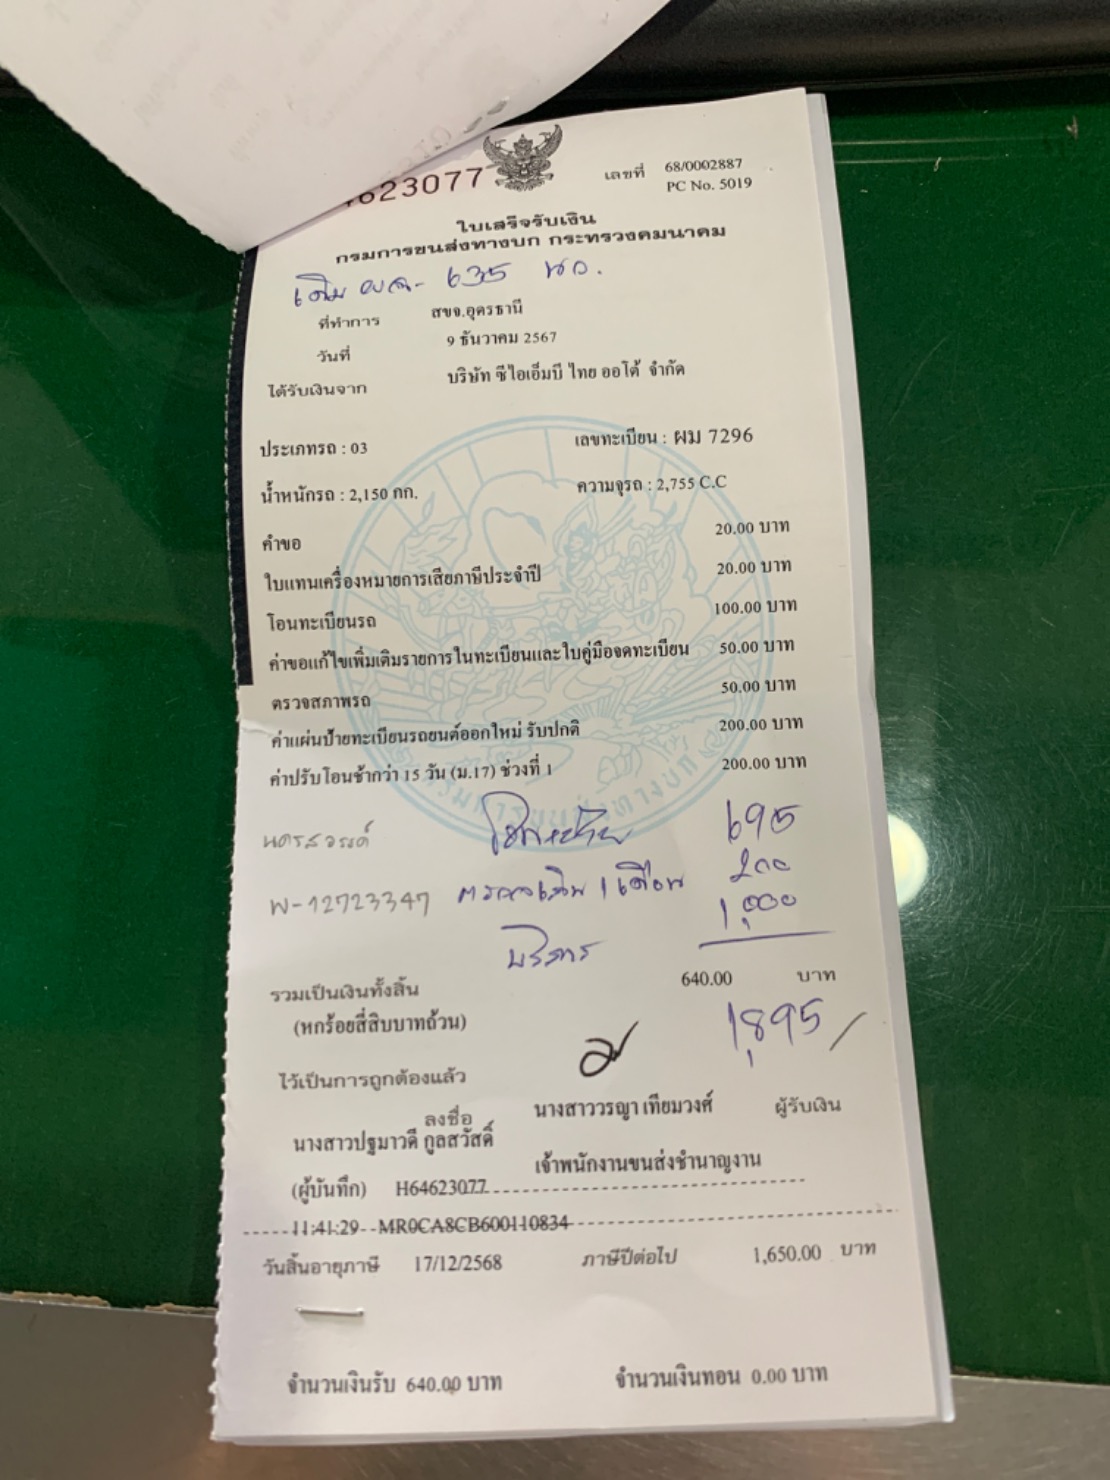 4623077
เลขที่ 68/0002887
PC No. 5019
ใบเสร็จรับเงิน
กรมการขนส่งทางบก กระทรวงคมนาคม
เดิม 635 นว.
ที่ทำการ สขจ.อุดรธานี
วันที่ 9 ธันวาคม 2567
ได้รับเงินจาก บริษัท ซีไอเอ็มบี ไทย ออโต้ จำกัด
ประเภทรถ : 03 เลขทะเบียน : ผม 7296
น้ำหนักรถ : 2,150 กก. ความจุรถ : 2,755 C.C
คำขอ 20.00 บาท
ใบแทนเครื่องหมายการเสียภาษีประจำปี 20.00 บาท
โอนทะเบียนรถ 100.00 บาท
ค่าขอแก้ไขเพิ่มเติมรายการในทะเบียนและใบคู่มือจดทะเบียน 50.00 บาท
ตรวจสภาพรถ 50.00 บาท
ค่าแผ่นป้ายทะเบียนรถยนต์ออกใหม่ รับปกติ 200.00 บาท
ค่าปรับโอนช้ากว่า 15 วัน (ม.17) ช่วงที่ 1 200.00 บาท
นครสวรรค์ 695
พ-12723347 1 เดือน 200
บริการ 1,000
รวมเป็นเงินทั้งสิ้น 640.00 บาท
(หกร้อยสี่สิบบาทถ้วน) 1,895/
ไว้เป็นการถูกต้องแล้ว
ลงชื่อ นางสาววรญา เทียมวงศ์ ผู้รับเงิน
นางสาวปฐมาวดี กูลสวัสดิ์
(ผู้บันทึก) H64623077 เจ้าพนักงานขนส่งชำนาญงาน
11:41:29 MR0CA8CB600110834
วันสิ้นอายุภาษี 17/12/2568 ภาษีปีต่อไป 1,650.00 บาท
จำนวนเงินรับ 640.00 บาท จำนวนเงินทอน 0.00 บาท